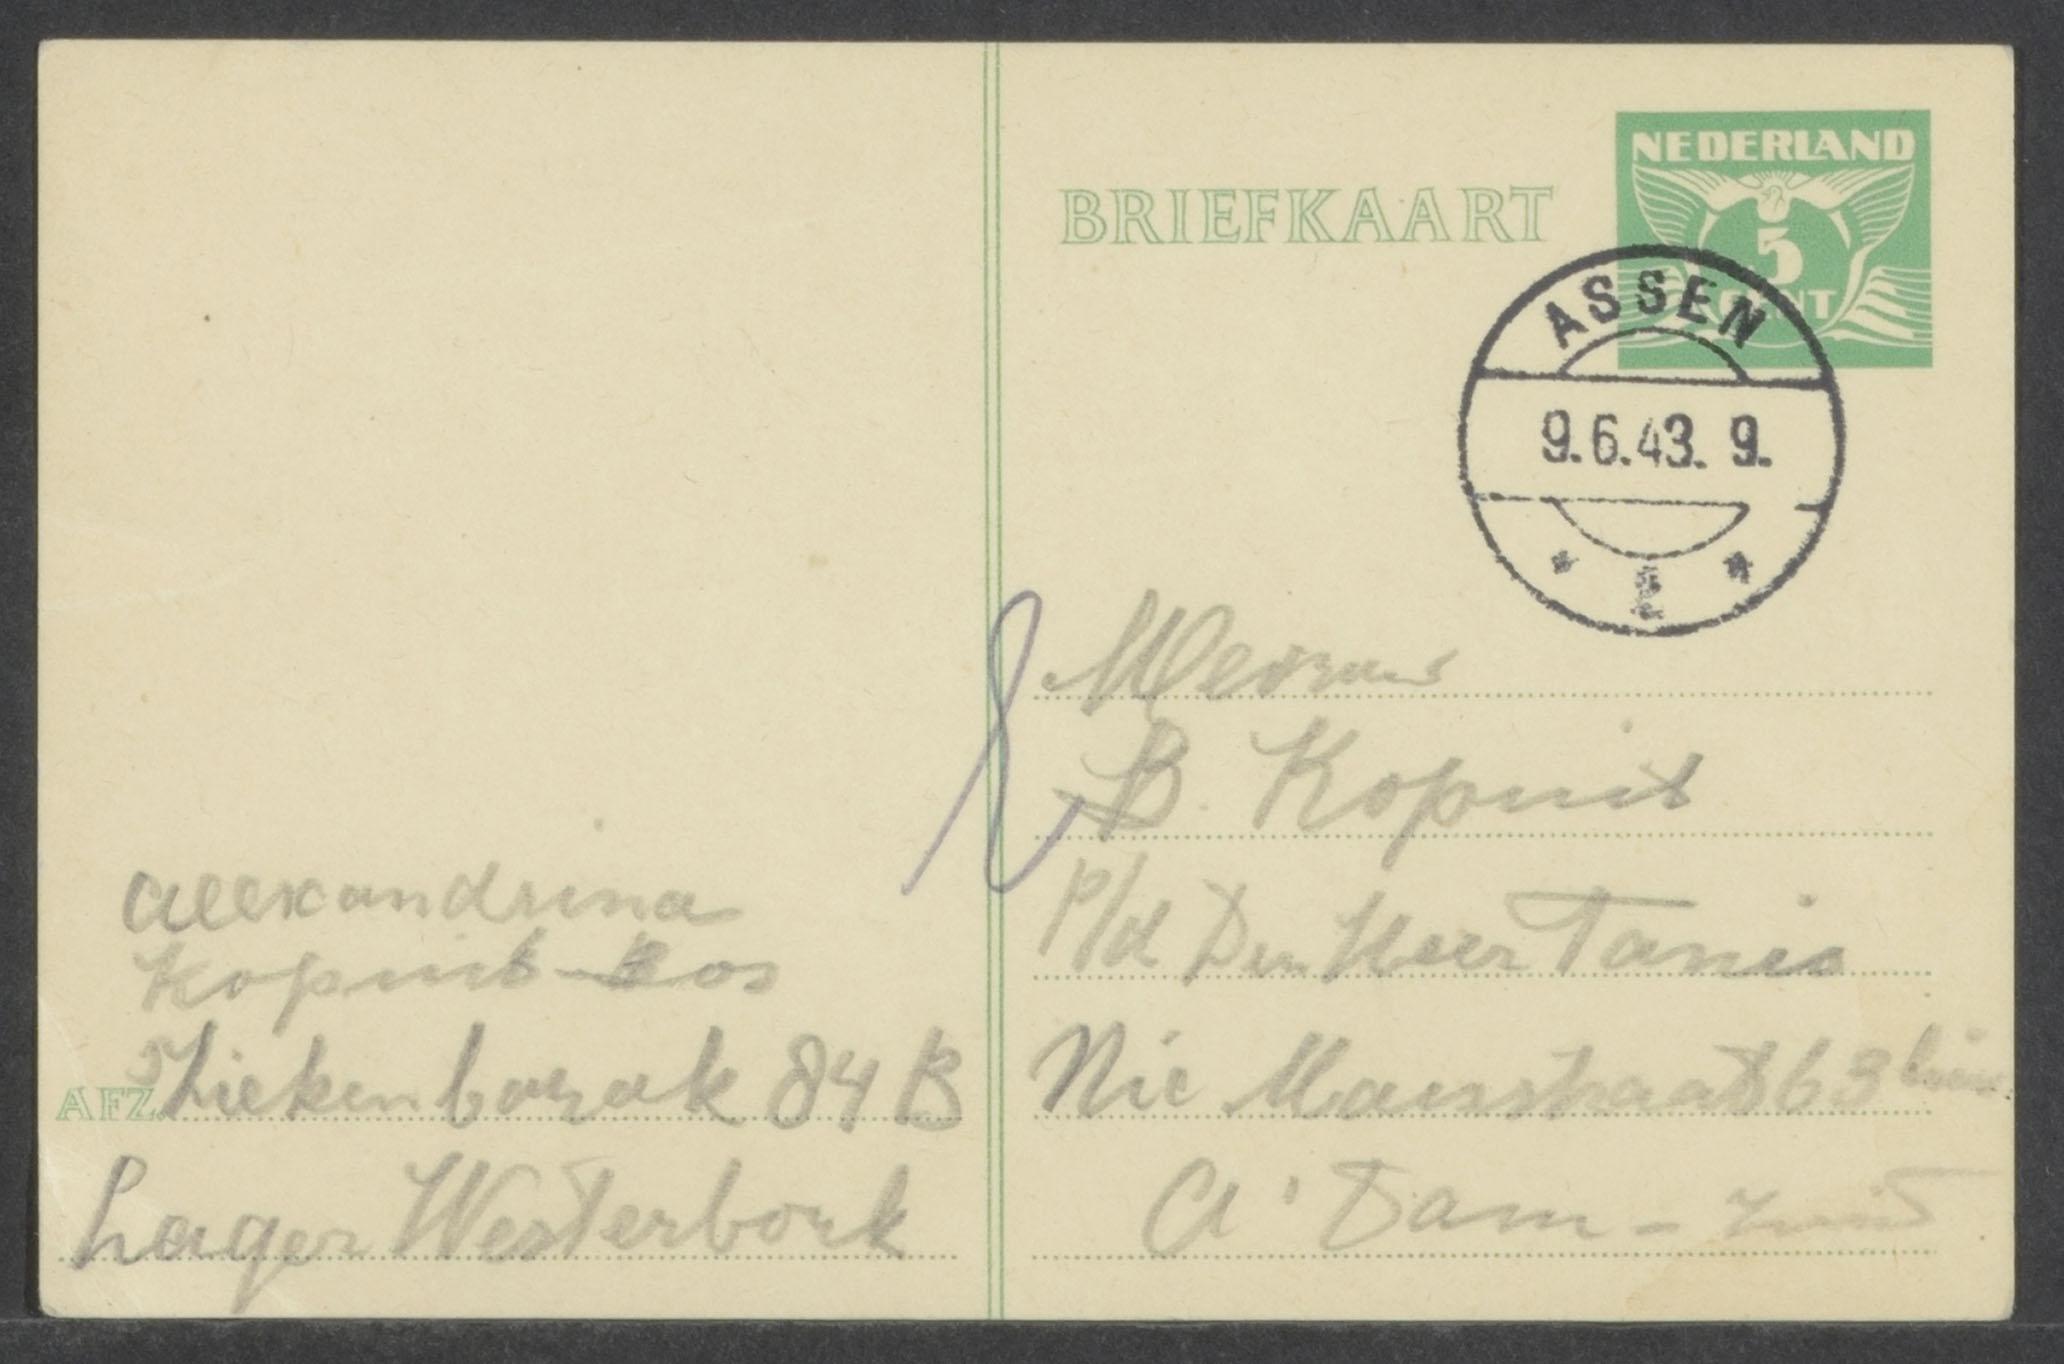 NEDERLAND
5
CENT
BRIEFKAART
ASSEN
9.6.43. 9.
Mevrouw
B. Kopuit
P/A Den Heer Tanis
Nic Maesstraat 63 huis
A'Dam - Zuid
Alexandrina
Kopuit-Bos
AFZ. Ziekenbarak 84 B
Lager Westerbork